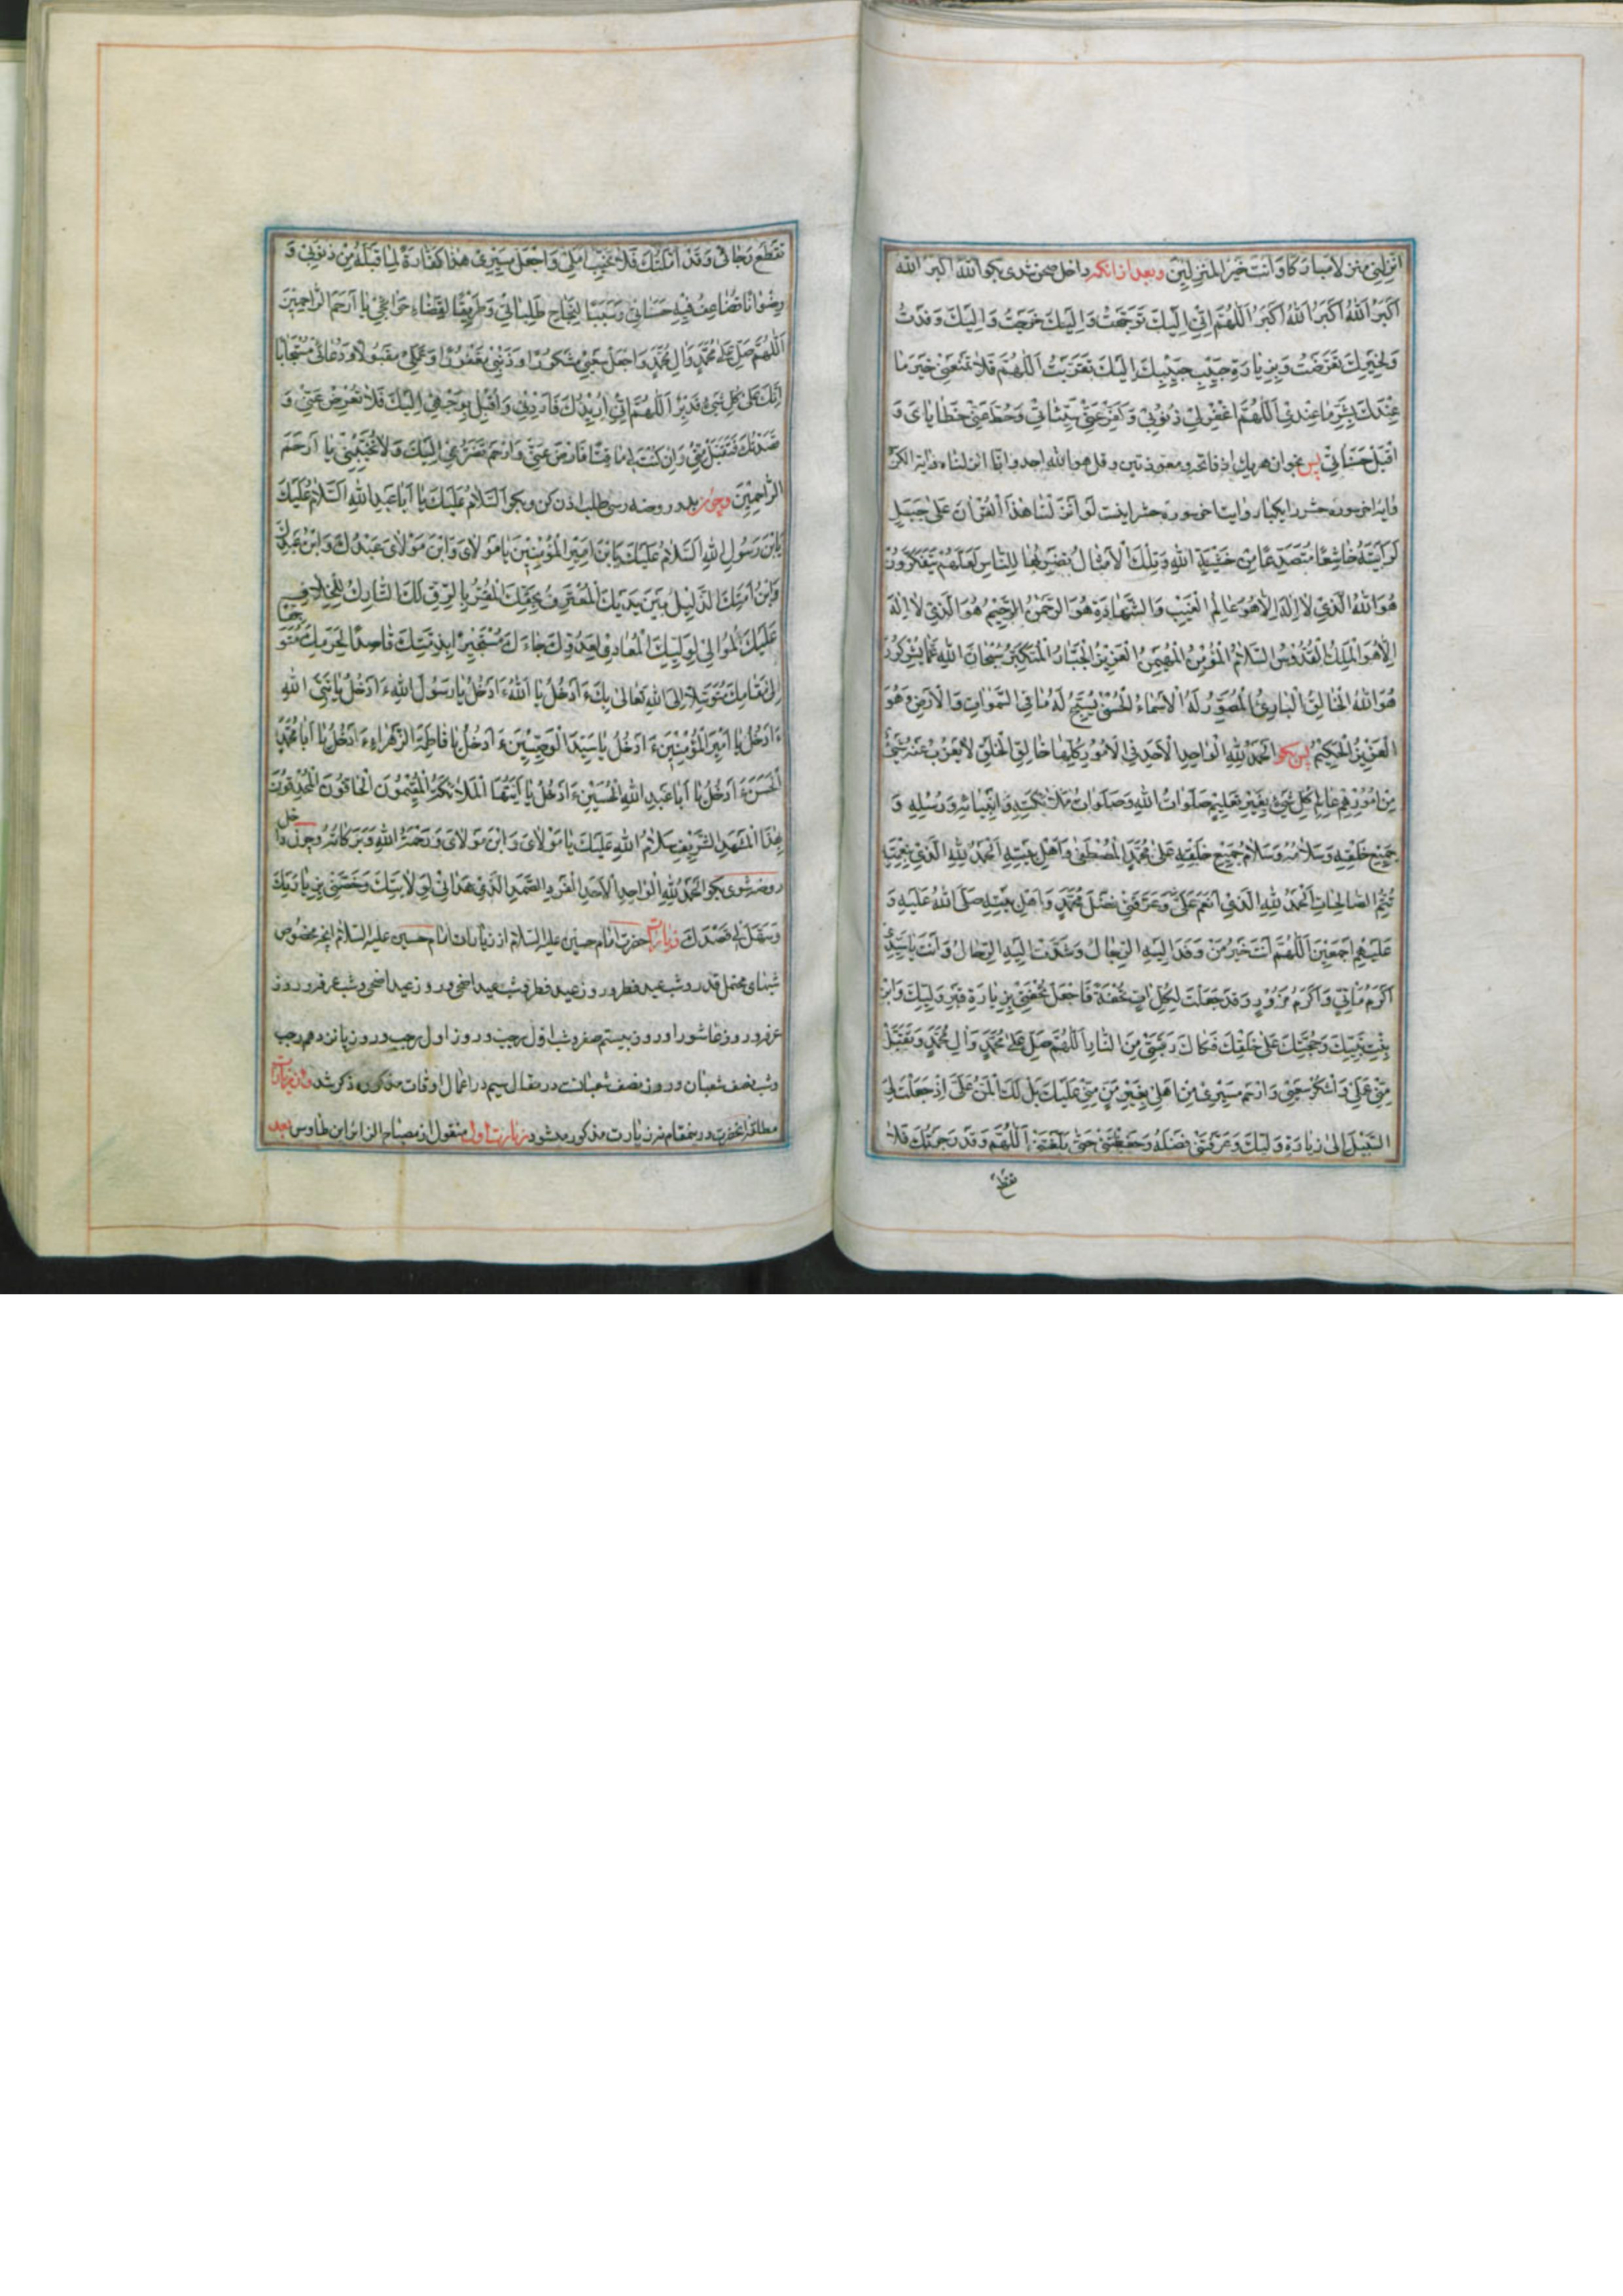 انزلنی منزلا مبارکا وانت خیر المنزلین وبعد ازانکه داخل صحن شدی بکو الله اکبر الله
اَکبَرُ اَللهُ اَکبَرُ اَللهُ اَکبَرُ اَللّٰهُمَّ اِنّی اِلَیكَ تَوَجَّهتُ وَ اِلَیكَ خَرَجتُ وَ اِلَیكَ وَفَدتُ
وَلِخَیرِكَ تَعَرَّضتُ وَبِزِیارَةِ حَبیبِ حَبیبِكَ اِلَیكَ تَقَرَّبتُ اَللّٰهُمَّ فَلا تَمنَعنی خَیرَ ما
عِندَكَ بِشَرِّ ما عِندی اَللّٰهُمَّ اغفِرلی ذُنُوبی وَ کَفِّر عَنّی سَیِّئاتی وَ حُطَّ عَنّی خَطایایَ وَ
اقبَل حَسَناتی پس بخوان هریك از فاتحه و معوذتین و قل هو الله احد و انا انزلناه و ایة الکر
و ایة اخر سوره حشر را یکبار و ایات اخر سوره حشر اینست لَو اَنزَلنا هٰذَا القُرانَ عَلیٰ جَبَلٍ
لَرَاَیتَهُ خاشِعًا مُتَصَدِّعًا مِن خَشیَةِ اللهِ وَتِلكَ الاَمثالُ نَضرِبُها لِلنّاسِ لَعَلَّهُم یَتَفَکَّرُونَ
هُوَ اللهُ الَّذی لا اِلٰهَ اِلّا هُوَ عالِمُ الغَیبِ وَ الشَّهادَةِ هُوَ الرَّحمٰنُ الرَّحیمُ هُوَ الَّذی لا اِلٰهَ
اِلّا هُوَ المَلِكُ القُدُّوسُ السَّلامُ المُؤمِنُ المُهَیمِنُ العَزیزُ الجَبّارُ المُتَکَبِّرُ سُبحانَ اللهِ عَمّا یُشرِکُونَ
هُوَ اللهُ الخالِقُ البارِئُ المُصَوِّرُ لَهُ الاَسماءُ الحُسنیٰ یُسَبِّحُ لَهُ ما فِی السَّمٰواتِ وَ الاَرضِ وَهُوَ
العَزیزُ الحَکیمُ پس بکو اَلحَمدُ لِلّٰهِ الواحِدِ الاَحَدِ فِی الاُمُورِ کُلِّها خالِقِ الخَلقِ لا یَعزُبُ عَنهُ شَیئٌ
مِن اُمُورِهِم عالِمِ کُلِّ شَیئٍ بِغَیرِ تَعلیمٍ صَلَواتُ اللهِ وَ صَلَواتُ مَلائِکَتِهِ وَ انبیائِهِ وَ رُسُلِهِ وَ
جَمیعِ خَلقِهِ وَ سَلامُهُ وَ سَلامُ جَمیعِ خَلقِهِ عَلیٰ مُحَمَّدٍ المُصطَفیٰ وَ اَهلِ بَیتِهِ اَلحَمدُ لِلّٰهِ الَّذی بِنِعمَتِهِ
تَتِمُّ الصّالِحاتُ اَلحَمدُ لِلّٰهِ الَّذی اَنعَمَ عَلَیَّ وَ عَرَّفَنی فَضلَ مُحَمَّدٍ وَ اَهلِ بَیتِهِ صَلَّی اللهُ عَلَیهِ وَ
عَلَیهِم اَجمَعینَ اَللّٰهُمَّ اَنتَ خَیرُ مَن وَفَدَ اِلَیهِ الرِّجالُ وَشُدَّت اِلَیهِ الرِّحالُ وَ اَنتَ یا سَیِّدی
اَکرَمُ مَأتِیٍّ وَ اَکرَمُ مَزُورٍ وَ قَد جَعَلتَ لِکُلِّ اتٍ تُحفَةً فَاجعَل تُحفَتی بِزِیارَةِ قَبرِ وَلِیِّكَ وَ ابنِ
بِنتِ نَبِیِّكَ وَ حُجَّتِكَ عَلیٰ خَلقِكَ فَکاكَ رَقَبَتی مِنَ النّارِ اَللّٰهُمَّ صَلِّ عَلیٰ مُحَمَّدٍ وَ الِ مُحَمَّدٍ وَ تَقَبَّل
مِنّی عَمَلی وَ اشکُر سَعیی وَ ارحَم مَسیری مِن اَهلی بِغَیرِ مَنٍّ مِنّی عَلَیكَ بَل لَكَ المَنُّ عَلَیَّ اِذ جَعَلتَ لِیَ
السَّبیلَ اِلیٰ زِیارَةِ وَلِیِّكَ وَ عَرَّفتَنی فَضلَهُ وَ حَفِظتَنی حَتّیٰ بَلَّغتَنی اَللّٰهُمَّ وَ قَد رَجَوتُكَ فَلا
تقطع
تَقطَع رَجائی وَ قَد اَمَّلتُكَ فَلا تُخَیِّب اَمَلی وَ اجعَل مَسیری هٰذا کَفّارَةً لِما قَبلَهُ مِن ذُنُوبی وَ
رِضوانًا تُضاعِفُ فیهِ حَسَناتی وَ سَبَبًا لِنَجاحِ طَلِباتی وَ طَریقًا لِقَضاءِ حَوائِجی یا اَرحَمَ الرّاحِمینَ
اَللّٰهُمَّ صَلِّ عَلیٰ مُحَمَّدٍ وَ الِ مُحَمَّدٍ وَ اجعَل سَعیی مَشکُورًا وَ ذَنبی مَغفُورًا وَ عَمَلی مَقبُولًا وَ دُعائی مُستَجابًا
اِنَّكَ عَلیٰ کُلِّ شَیئٍ قَدیرٌ اَللّٰهُمَّ اِنّی اُریدُكَ فَاَرِدنی وَ اَقبَلُ بِوَجهی اِلَیكَ فَلا تُعرِض عَنّی وَ
قَصَدتُكَ فَتَقَبَّل مِنّی وَ اِن کُنتَ لی ماقِتًا فَارضَ عَنّی وَ ارحَم تَضَرُّعی اِلَیكَ وَ لا تُخَیِّبنی یا اَرحَمَ
الرّاحِمینَ وچون بدر روضه رسی طلب اذن کن و بکو اَلسَّلامُ عَلَیكَ یا اَبا عَبدِ اللهِ اَلسَّلامُ عَلَیكَ
یَابنَ رَسُولِ اللهِ اَلسَّلامُ عَلَیكَ یَابنَ اَمیرِ المُؤمِنینَ یا مَولایَ وَابنَ مَولایَ عَبدُكَ وَابنُ عَبدِكَ
وَابنُ اَمَتِكَ الذَّلیلُ بَینَ یَدَیكَ المُعتَرِفُ بِحَقِّكَ المُقِرُّ بِالرِّقِّ لَكَ التّارِكُ لِلخِلافِ
عَلَیكَ المُوالی لِوَلِیِّكَ المُعادی لِعَدُوِّكَ جاءَكَ مُستَجیرًا بِذِمَّتِكَ قاصِدًا لِحَرَمِكَ مُتَوَجِّهًا
اِلیٰ مَقامِكَ مُتَوَسِّلًا اِلَی اللهِ تَعالیٰ بِكَ ءَاَدخُلُ یا اَللهُ ءَاَدخُلُ یا رَسُولَ اللهِ ءَاَدخُلُ یا نَبِیَّ اللهِ
ءَاَدخُلُ یا اَمیرَ المُؤمِنینَ ءَاَدخُلُ یا سَیِّدَ الوَصِیّینَ ءَاَدخُلُ یا فاطِمَةَ الزَّهراءِ ءَاَدخُلُ یا اَبا مُحَمَّدٍ
الحَسَنَ ءَاَدخُلُ یا اَبا عَبدِ اللهِ الحُسَینَ ءَاَدخُلُ یا اَیَّتُهَا المَلائِکَةُ المُقیمُونَ الحافُّونَ المُحدِقُونَ
بِهٰذَا المَشهَدِ الشَّریفِ سَلامُ اللهِ عَلَیكَ یا مَولایَ وَ ابنَ مَولایَ وَ رَحمَةُ اللهِ وَ بَرَکاتُهُ وچون داخل
روضه شوی بکو اَلحَمدُ لِلّٰهِ الواحِدِ الاَحَدِ الفَردِ الصَّمَدِ الَّذی هَدانی لِوِلایَتِكَ وَ خَصَّنی بِزِیارَتِكَ
وَ سَهَّلَ لی قَصدَكَ زیارت حضرت امام حسین علیه السلام از زیارات امام حسین علیه السلام انچه مخصوص
شبهای محتمل قدر و شب عید فطر و روز عید فطر و شب عید اضحی و روز عید اضحی و شب عرفه و روز
عرفه و روز عاشورا و روز بیستم صفر و شب اول رجب و روز اول رجب و روز پانزدهم رجب
و شب نصف شعبان و روز نصف شعبانست در مقاله سیم در اعمال اوقات مذکوره ذکر شد و از زیارات
مطلقه انحضرت درینمقام نه زیارت مذکور میشود زیارت اول منقول از مصباح الزائر ابن طاوس بعد